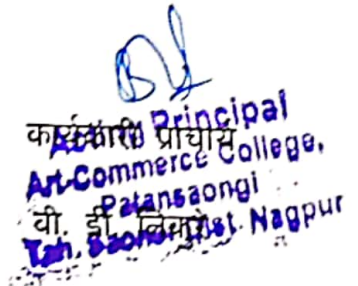 कार्यकारी प्राचार्य
Principal
Art-Commerce College,
Patansaongi
वी. डी.
Tah. Dist. Nagpur